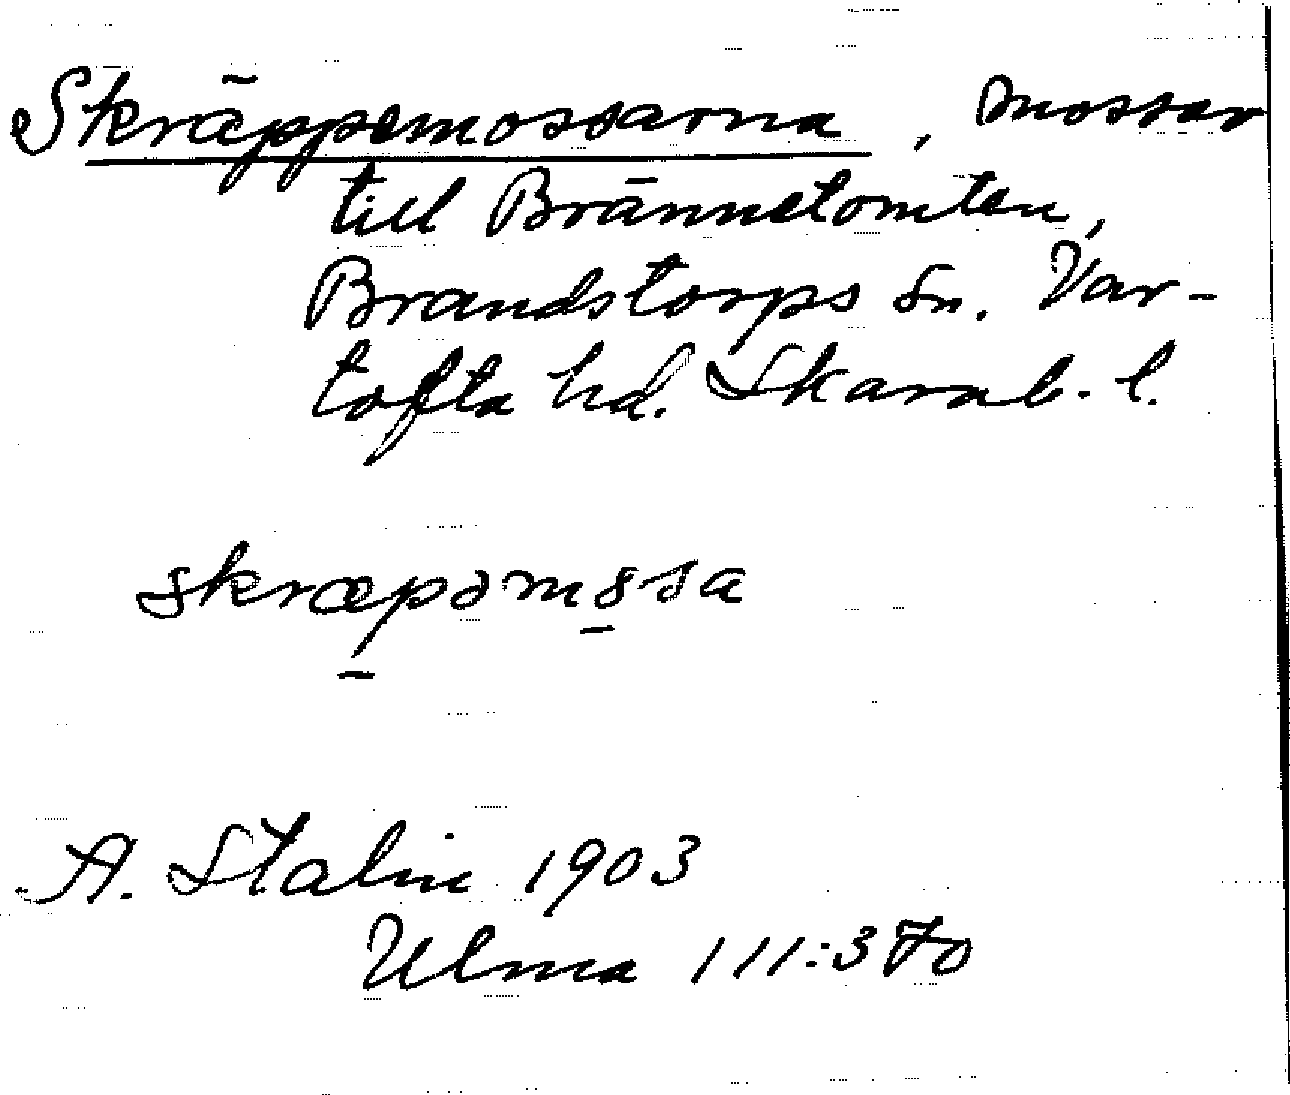 Skräppemossarna, mossar
till Brännetomten,
Brandstorps sn. Var-
tofta hd. Skarab. l.
skræpəmåsa
A. Stalin 1903
Ulma 111:370